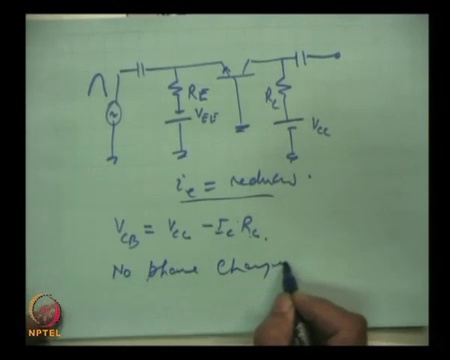 RE
VEE
RC
VCC
ie = reduces.
VCB = VCC - IC RC.
No phase Chang
NPTEL